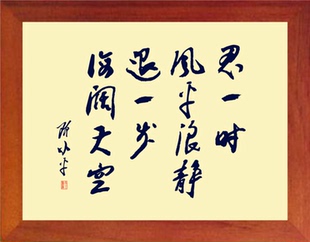 忍一时
风平浪静
退一步
海阔天空